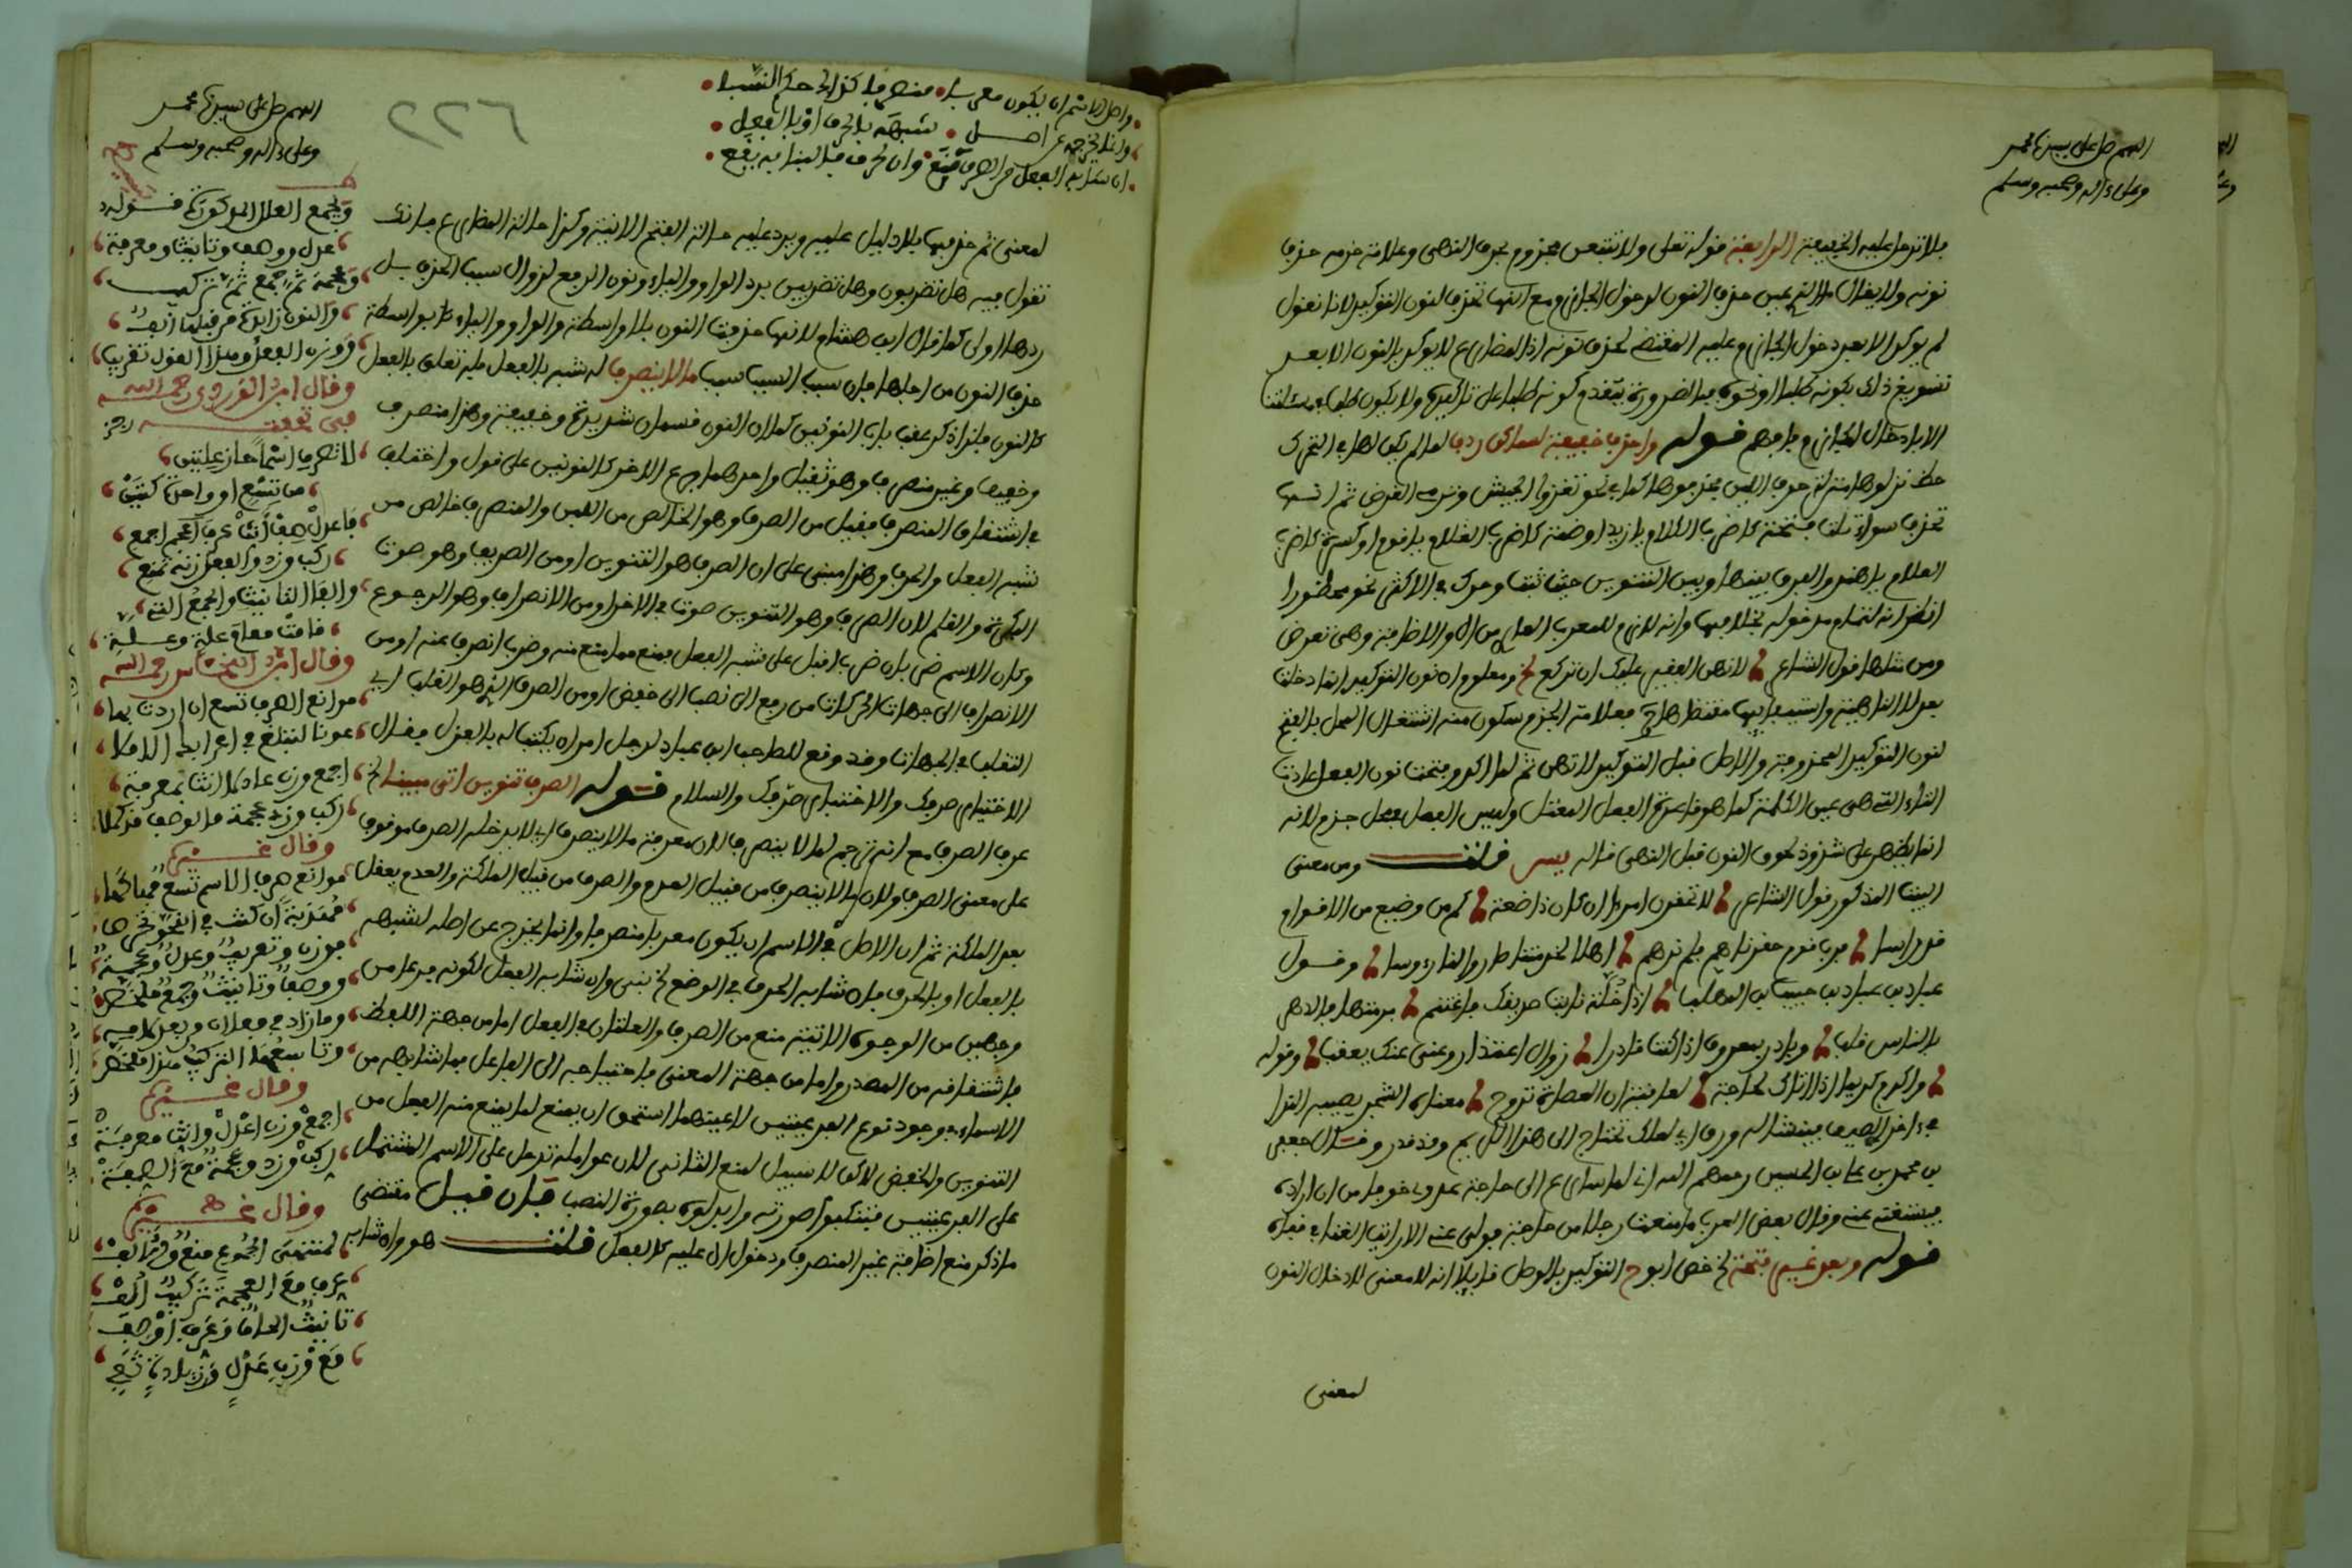 اللهم صل على سيدنا محمد
وعلى ءاله وصحبه وسلم
فلا تدخل عليه الخفيفة الرابعة قوله تعلى ولا تتبعن مجزوم بحرف النهي وعلامة جزمه حذف
نونه ولا يقال حذف النون لدخول الجازم ومع النون التوكيد لانا نقول
لم يوكد الا بعد دخول الجازم عليه المقتضى لحذف نونه اذ المضارع لا يوكد بالنون الا بعد
تسويغ ذلك بكونه طلبا او نحوه فبالضرورة يتقدم كونه طلبا على تاكيده ولا يكون طلبا
الا بادخال الجازم فافهم قوله واحذف خفيفة لساكن ردف لما لم يكن لها في التحرك
حظ نزلوها منزلة حرف اللين فحذفوها كما في نحو تغزوا الجيش وترمي الغرض ثم انها
تحذف سواء تلت فتحة كاضرب الغلام يا زيد او ضمة كاضرب الغلام يا قوم او كسرة كاضرب
الغلام يا هند والفرق بينها وبين التنوين حيث ثبت وحرك في الاكثر نحو محظورا
انظر انه لتمام مدخوله بخلافها وانه لازم للمعرب العاري من ال والاضافة وهي تعرض
ومن مثلها قول الشاعر لا تهين الفقير علك ان تركع الخ ومعلوم ان نون التوكيد انما دخلت
بعد لا الناهية فعلامة الجزم سكون منع اشتغال المحل بالفتح
لنون التوكيد المحذوفة والاصل قبل التوكيد لا تهن ثم لما اكد وفتحت نون الفعل عادت
الياء التي هي عين الكلمة كما هو قاعدة الفعل المعتل وليس الفعل بمحل جزم لانه
انما يظهر على شذوذ لحوق النون قبل النهي قاله يس قلت ومن معنى
البيت المذكور قول الشاعر لا تحقرن امرءا ان كان ذا ضعة كم من وضيع من الاقوام
قد راسا فرب قوم حقرناهم فلم نرهم اهلا لخدمتنا صاروا لنا رءوسا وقول
عباد بن عباد بن حبيب بن المهلب اذا خلة نابت صديقك فاغتنم مرمتها فالدهر
بالناس قلب وبادر بمعروف اذا كنت قادرا زوال اقتدار او غنى عنك يعقب وقوله
واكرم كريما ان اتاك لحاجة لعاقبة ان العضاه تروح معناه الشجر يصيبه الندا
في اخر الصيف فينشا له ورق اي لعلك تحتاج الى هذا الكريم وقد قدر وقال جعفر
بن محمد بن علي بن الحسين رحمهم الله اني لاسارع الى حاجة عدوي خوفا من ان ارده
فيستغني عني وقال بعض العرب ما منعت رجلا من حاجة فولى عني الا رايت الغنا في قفاه
قوله وبعد غير فتحة الخ خص ابو ح التوكيد بالوصل قايلا انه لا معنى لادخال النون
لمعنى
٢٢٦
واصل الاسم ان يكون معربا منصرفا كذا لدى حكم النسبا
وانما يخرجه عن اصل شبهه بالحرف او بالفعل
ان شابه الفعل من الصرف منع وان لحرف فالبنا به يقع
اللهم صل على سيدنا محمد
وعلى ءاله وصحبه وسلم
لمعنى ثم حذفها بلا دليل عليه ويرد عليه حالة الفتح الاتية وكذا حالة المضارع فانك
تقول فيه هل تضربون وهل تضربين برد الواو والياء ونون الرفع لزوال سبب الحذف بل
ردها اولى كما قال ابن هشام لانها حذفت النون بلا واسطة والواو والياء بواسطة
حذف النون من اجلها فان سبب السبب سبب ما لا ينصرف له شبه بالفعل فله تعلق بالفعل
كالنون فلذا ذكر عقب باب النونين كما ان النون قسمان شديدة وخفيفة وهذا منصرف
وخفيف وغير منصرف وهو ثقيل واحدهما فرع الاخر كالنونين على قول واختلف
في اشتقاق المنصرف فقيل من الصرف وهو الخالص من اللبن والمنصرف خالص من
شبه الفعل والحرف وهذا مبني على ان الصرف هو التنوين او من الصريف وهو صوت
البكرة والقلم لان الصرف وهو التنوين صوت في الاخر او من الانصراف وهو الرجوع
وكان الاسم ضربان ضرب اقبل على شبه الفعل فمنع مما منع منه وضرب انصرف عنه او من
الانصراف الى جهات الحركات من رفع الى نصب الى خفض او من الصرف الذي هو القلب اي
التقلب في الجهات وقد وقع للصاحب ابن عباد لرجل امر ان يكتب له بالعزل فقال
الاختيار صرفك والاختبار صرفك والسلام قوله الصرف تنوين اتى مبينا الخ
عرف الصرف مع انه ترجم لما لا ينصرف لان معرفة ما لا ينصرف اي لا يدخله الصرف موقوف
على معنى الصرف ولان ما لا ينصرف من قبيل العدم والصرف من قبيل الملكة والعدم يعقل
بعد الملكة ثم ان الاصل في الاسم ان يكون معربا منصرفا وانما يخرج عن اصله لشبهه
بالفعل او بالحرف فان شابه الحرف في الوضع الخ بني وان شابه الفعل لكونه فرعا من
وجهين من الوجوه الاتية منع من الصرف والعلتان في الفعل اما من جهة اللفظ
فاشتقاقه من المصدر واما من جهة المعنى فاحتياجه الى الفاعل فما شابهه من
الاسماء في وجود نوع الفرعيتين لا عينهما استحق ان يمنع لما يمنع منه الفعل من
التنوين والخفض لاكن لا سبيل لمنع الثاني لان عوامله تدخل على الاسم المشتمل
على الفرعيتين فتنكبوا صورته وابدلوه بصورة النصب فان قيل مقتضى
ما ذكر منع اضافة غير المنصرف ودخول ال عليه كالفعل قلت هو وان شابه
ويجمع العلل المذكورة قوله
عدل ووصف وتانيث ومعرفة
وعجمة ثم جمع ثم تركيب
والنون زائدة من قبلها الف
ووزن الفعل وهذا القول تقريب
وقال ابن الوردي رحمه الله
في تحفته رجز
لا تصرف اسما حاز علتين
من تسع او واحدة كتين
فاعدل صف انث عرف اعجم اجمع
ركب وزد والفعل زنه تمنع
والف التانيث والجمع التي
قامت مقام علة وعلة
وقال ابن النحاس رحمه الله
موانع الصرف تسع ان اردت بها
عونا لتبلغ في اعرابك الاملا
اجمع وزن عادلا انث بمعرفة
ركب وزد عجمة فالوصف قد كملا
وقال غيره
موانع صرف الاسم تسع فهاكها
مهذبة ان كنت في النحو تحرص
فوزن وتعريف وعدل وعجمة
ووصف وتانيث وجمع ملخص
وما زاد في فعلان وبعد
وتاسعها التركيب هذا ملخص
وقال غيره
اجمع وزن اعدل وانث معرفة
اركب وزد وعجمة مع الصفة
وقال غيره
لمنتهى الجموع منع والف
عرف مع العجمة تركيب الف
تانيث الحاق وعرف او صف
مع وزن عدل زيادة تفي